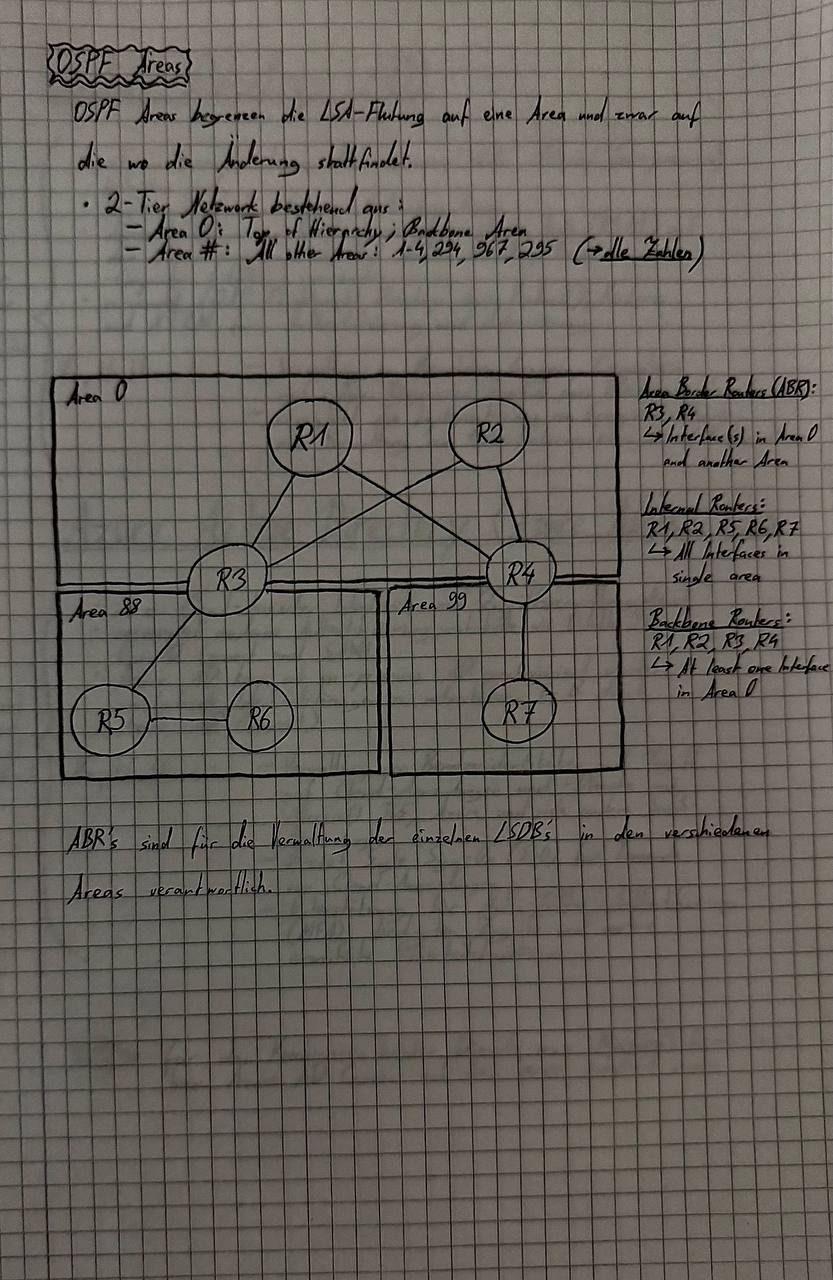 OSPF Areas
OSPF Areas begrenzen die LSA-Flutung auf eine Area und zwar auf
die wo die Änderung stattfindet.
• 2-Tier Netzwork bestehend aus:
— Area 0: Top of Hierarchy; Backbone Area
— Area #: All other Areas: 1-4,294,967,295 (→alle Zahlen)
Area 0
R1
R2
R3
R4
Area 88
Area 99
R5
R6
R7
Area Border Routers (ABR):
R3, R4
↳ Interface(s) in Area 0
and another Area
Internal Routers:
R1, R2, R5, R6, R7
↳ All Interfaces in
single area
Backbone Routers:
R1, R2, R3, R4
↳ At least one Interface
in Area 0
ABR's sind für die Verwaltung der einzelnen LSDB's in den verschiedenen
Areas verantwortlich.